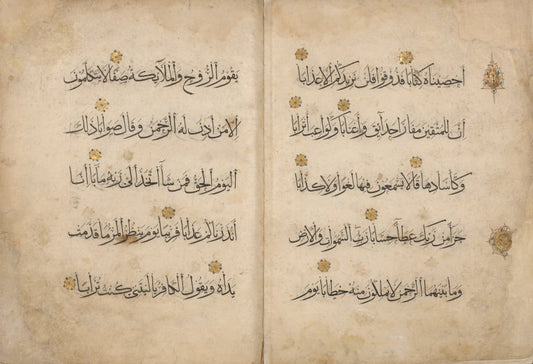 احصيناه كتابا فذوقوا فلن نزيدكم الا عذابا
ان للمتقين مفازا حدايق واعنابا وكواعب اترابا
وكاسا دهاقا لا يسمعون فيها لغوا ولا كذابا
جزآ من ربك عطآ حسابا رب السموات والارض
وما بينهما الرحمن لا يملكون منه خطابا يوم
يقوم الروح والملايكة صفا لا يتكلمون
الا من اذن له الرحمن وقال صوابا ذلك
اليوم الحق فمن شآ اتخذ الى ربه مآبا انا
انذرناكم عذابا قريبا يوم ينظر المرء ما قدمت
يداه ويقول الكافر يا ليتني كنت ترابا